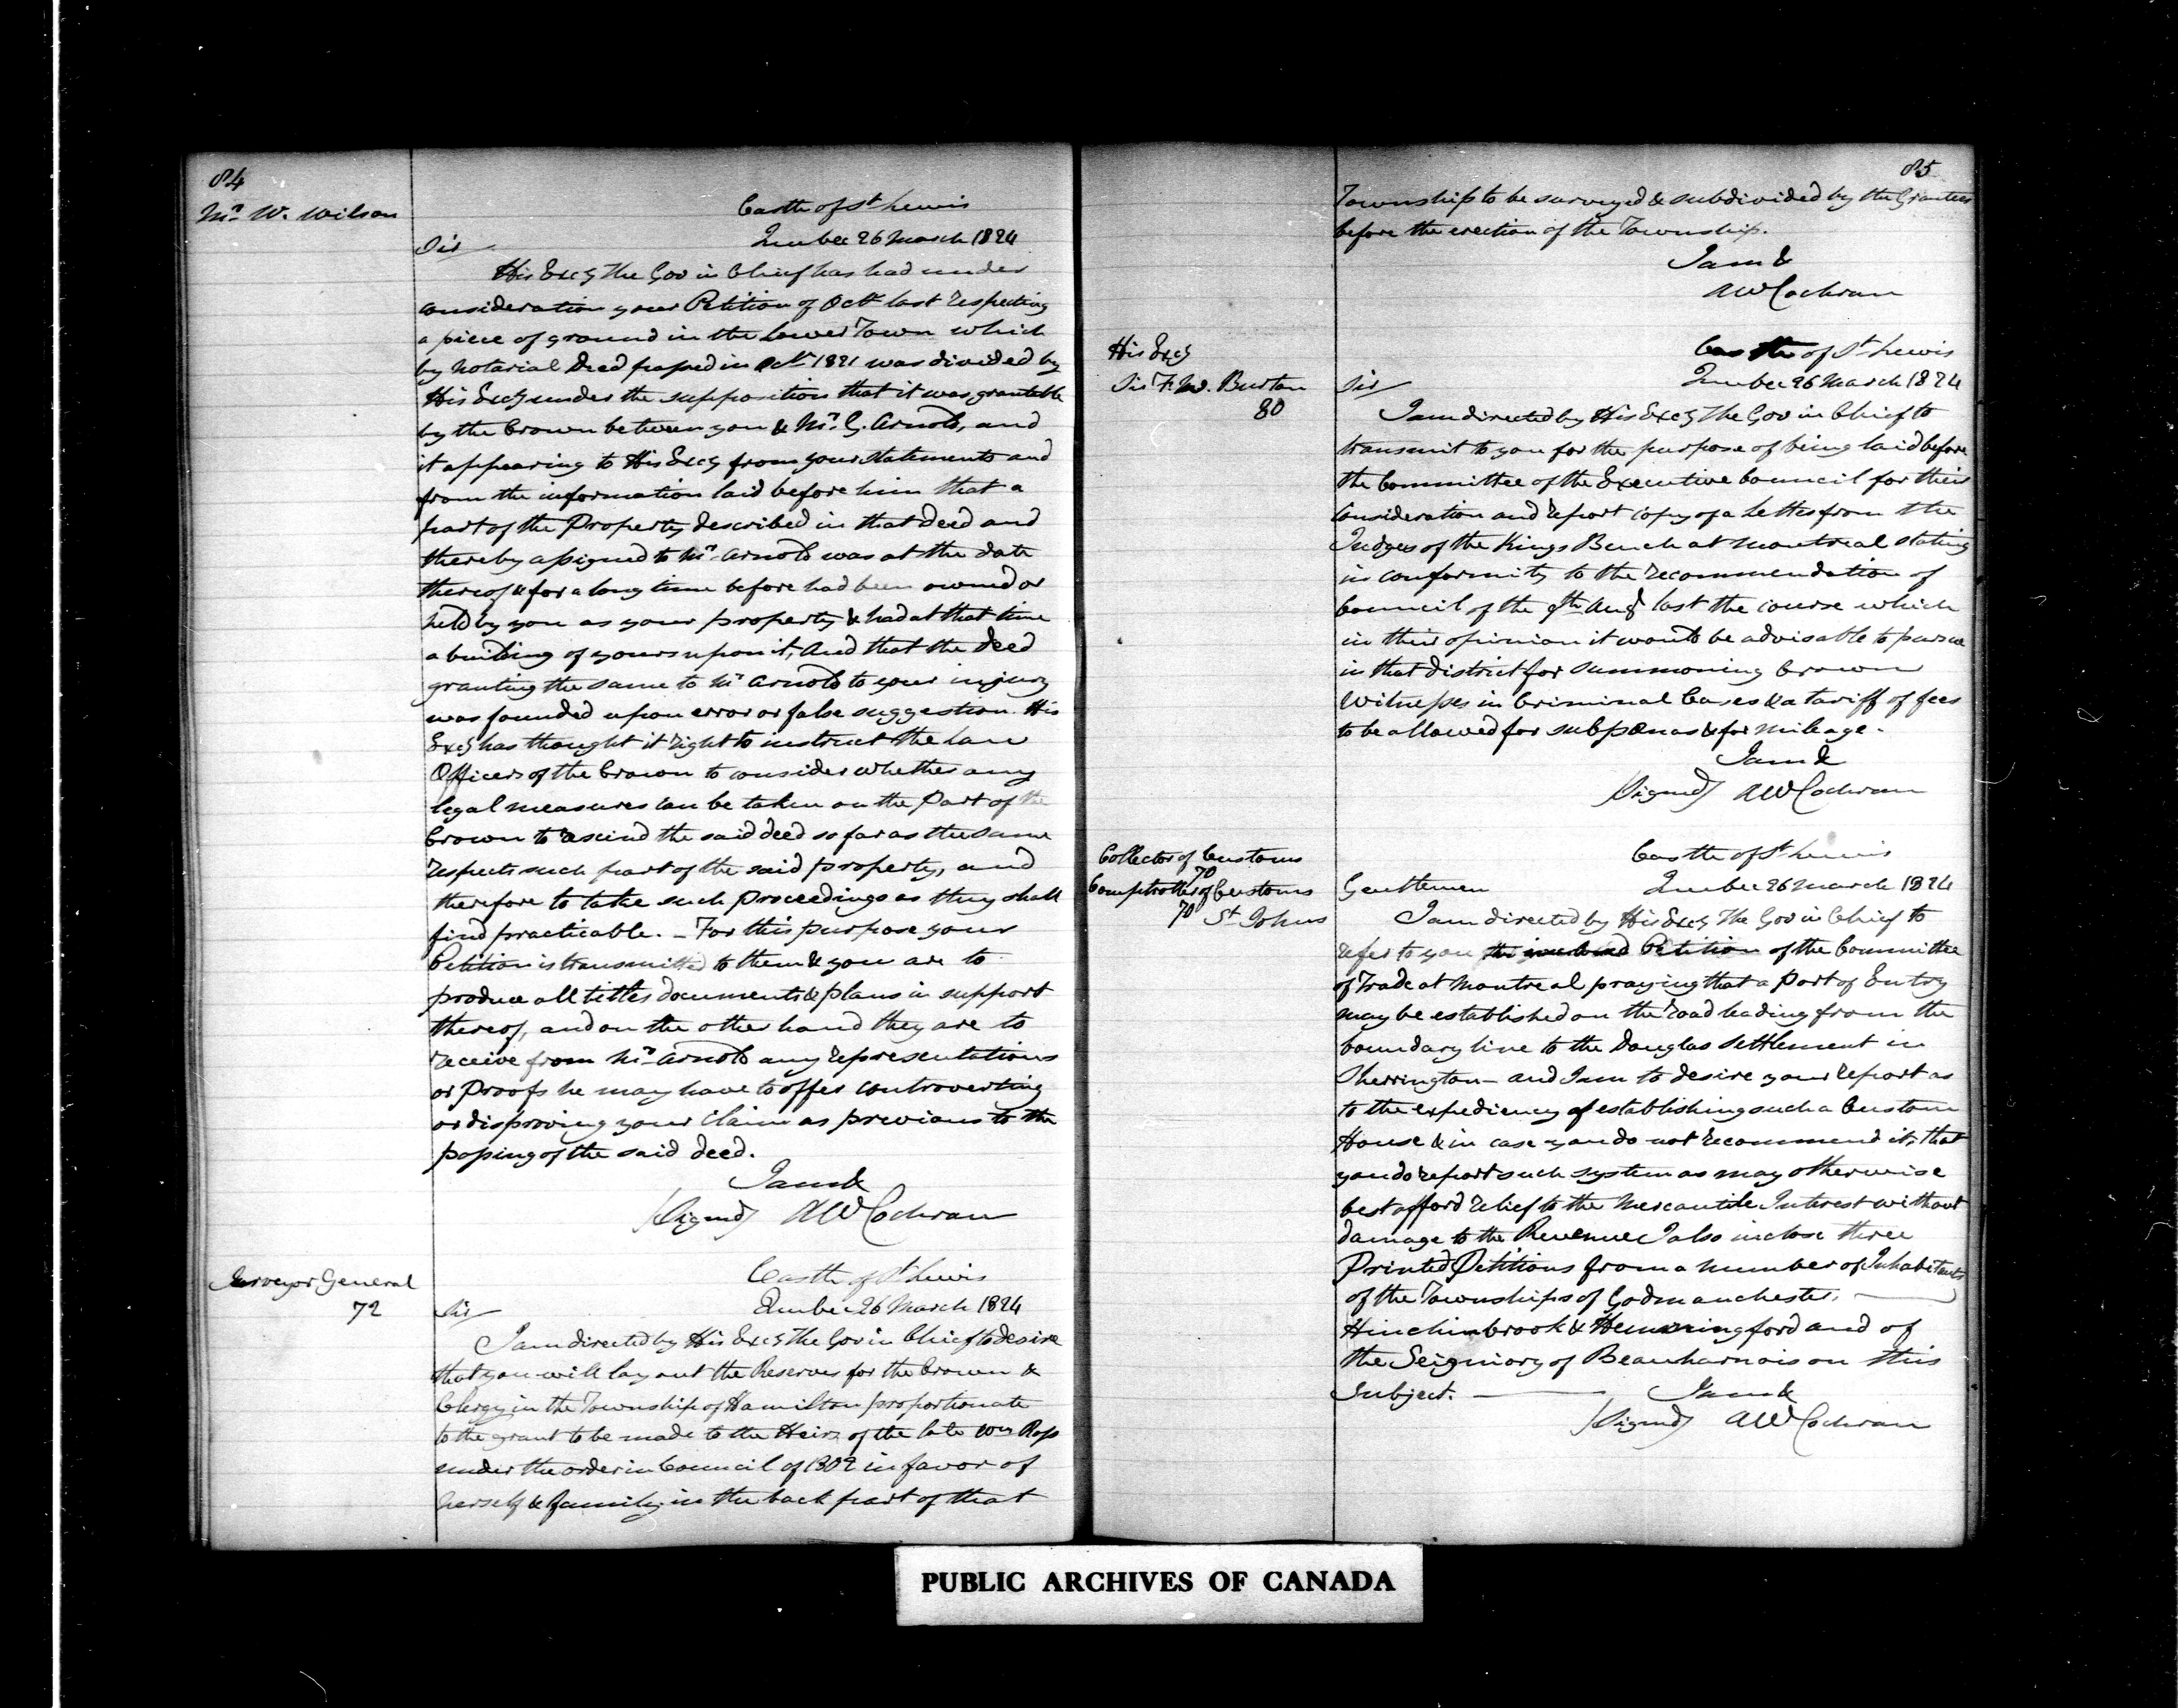 84
Mr. W. Wilson
Castle of St Lewis
Quebec 26 March 1824
Sir
His Excy The Gov in Chief has had under
consideration your Petition of Octr last respecting
a piece of ground in the Lower Town which
by Notarial Deed passed in Octr 1821 was divided by
His Excy under the supposition that it was grantable
by the Crown between you & Mr. G. Arnold, and
it appearing to His Excy from your statements and
from the information laid before him that a
part of the Property described in that deed and
thereby assigned to Mr. Arnold was at the date
thereof & for a long time before had been owned or
held by you as your property & had at that time
a building of yours upon it, And that the Deed
granting the same to Mr Arnold to your injury
was founded upon error or false suggestion. His
Excy has thought it right to instruct the Law
Officers of the Crown to consider whether any
legal measures can be taken on the Part of the
Crown to rescind the said deed so far as the same
respects such part of the said property, and
therefore to take such Proceedings as they shall
find practicable. – For this purpose your
Petition is transmitted to them & you are to
produce all titles documents & plans in support
thereof, and on the other hand they are to
receive from Mr. Arnold any representations
or Proofs he may have to offer controverting
or disproving your claim as previous to the
passing of the said deed.
I am &
(Signed) AW Cochran
Surveyor General
72
Castle of St Lewis
Quebec 26 March 1824
Sir
I am directed by His Excy The Gov in Chief to desire
that you will lay out the Reserves for the Crown &
Clergy in the Township of Hamilton proportionate
to the grant to be made to the Heirs of the late Wm Ross
under the order in Council of 1802 in favor of
herself & family in the back part of that
85
Township to be surveyed & subdivided by the Grantees
before the erection of the Township.
I am &
AW Cochran
His Excy
Sir F. W. Burton
80
Castle of St Lewis
Quebec 26 March 1824
Sir
I am directed by His Excy The Gov in Chief to
transmit to you for the purpose of being laid before
the Committee of the Executive Council for their
consideration and report copy of a Letter from the
Judges of the Kings Bench at Montreal stating
in conformity to the recommendation of
Council of the 9th Augt last the course which
in their opinion it would be advisable to pursue
in that district for summoning Crown
Witnesses in Criminal Cases & a tariff of fees
to be allowed for subpœnas & for mileage.
I am &
(Signed) AW Cochran
Collector of Customs
70
Comptroller of Customs
70 St. Johns
Castle of St Lewis
Quebec 26 March 1824
Gentlemen
I am directed by His Excy The Gov in Chief to
refer to you the inclosed Petition of the Committee
of Trade at Montreal praying that a Port of Entry
may be established on the road leading from the
boundary line to the Douglas Settlement in
Sherrington – and I am to desire your report as
to the expediency of establishing such a Custom
House & in case you do not recommend it, that
you do report such system as may otherwise
best afford relief to the Mercantile Interest without
damage to the Revenue I also inclose three
Printed Petitions from a number of Inhabitants
of the Townships of Godmanchester,
Hinchinbrook & Hemmingford and of
the Seigniory of Beauharnois on this
Subject.
I am &
(Signed) AW Cochran
PUBLIC ARCHIVES OF CANADA